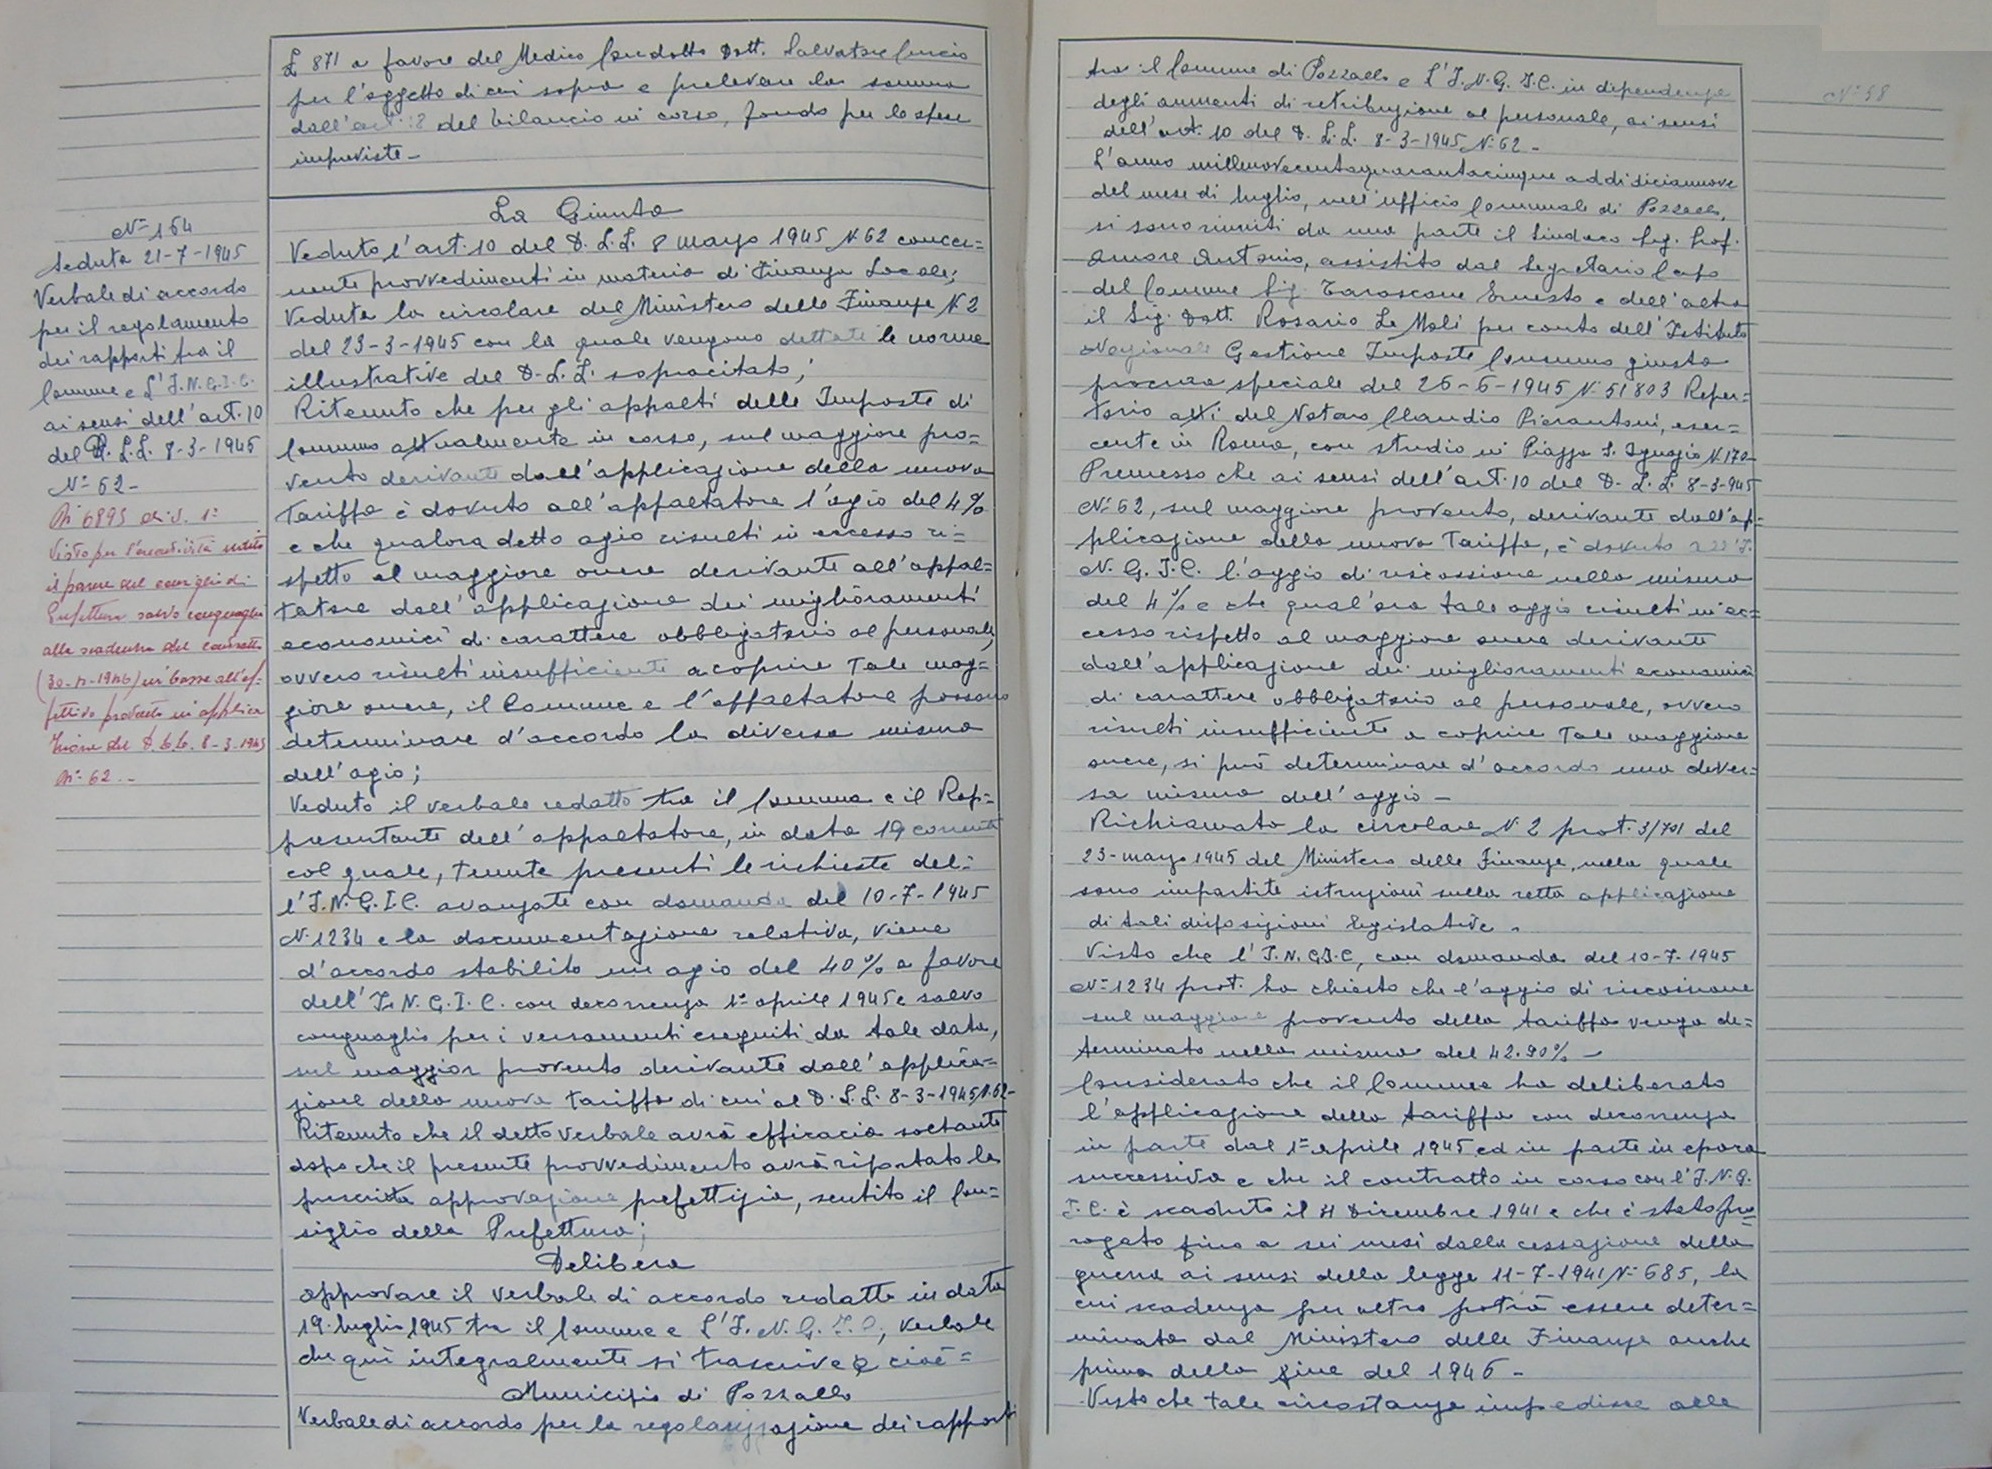 £ 871 a favore del Medico Condotto Dott. Salvatore Curcio
per l'oggetto di cui sopra e prelevare la somma
dall'art. 18 del bilancio in corso, fondo per le spese
impreviste -
N° 164
Seduta 21-7-1945
Verbale di accordo
per il regolamento
dei rapporti tra il
Comune e l'I.N.G.I.C.
ai sensi dell'art. 10
del D.L.L. 8-3-1945
N° 62 -
N. 6895 div. 1ª
Visto per l'esecutività sentito
il parere del consiglio di
Prefettura salvo conguaglio
alla scadenza del contratto
in base all'ef-
fettivo provento in applica
zione del D.L.L. 8-3-1945
N° 62 -
La Giunta
Veduto l'art. 10 del D.L.L. 8 marzo 1945 N. 62 concer=
nente provvedimenti in materia di Finanza Locale;
Veduta la circolare del Ministero delle Finanze N. 2
del 23-3-1945 con la quale vengono dettate le norme
illustrative del D.L.L. sopracitato;
Ritenuto che per gli appalti delle Imposte di
Consumo attualmente in corso, sul maggiore pro=
vento derivante dall'applicazione della nuova
Tariffa è dovuto all'appaltatore l'agio del 4%
e che qualora detto agio risulti in eccesso ri=
spetto al maggiore onere derivante all'appal=
tatore dall'applicazione dei miglioramenti
economici di carattere obbligatorio al personale,
ovvero risulti insufficiente a coprire Tale mag=
giore onere, il Comune e l'appaltatore possano
determinare d'accordo la diversa misura
dell'agio;
Veduto il verbale redatto tra il Comune e il Rap=
presentante dell'appaltatore, in data 19 corrente
col quale, tenute presenti le richieste del=
l'I.N.G.I.C. avanzate con domanda del 10-7-1945
N. 1234 e la documentazione relativa, viene
d'accordo stabilito un agio del 40% a favore
dell'I.N.G.I.C. con decorrenza 1° aprile 1945 e salvo
conguaglio per i versamenti eseguiti da tale data,
sul maggior provento derivante dall'applica=
zione della nuova tariffa di cui al D.L.L. 8-3-1945 N. 62-
Ritenuto che il detto verbale avrà efficacia soltanto
dopo che il presente provvedimento avrà riportato la
prescritta approvazione prefettizia, sentito il Con=
siglio della Prefettura;
Delibera
approvare il verbale di accordo redatto in data
19 luglio 1945 tra il Comune e l'I.N.G.I.C., verbale
che qui integralmente si trascrive e cioè =
Municipio di Pozzallo
Verbale di accordo per la regolarizzazione dei rapporti
N° 58
tra il Comune di Pozzallo e l'I.N.G.I.C. in dipendenza
degli aumenti di retribuzione al personale, ai sensi
dell'art. 10 del D.L.L. 8-3-1945 N. 62 -
L'anno millenovecentoquarantacinque addì diciannove
del mese di luglio, nell'ufficio Comunale di Pozzallo,
si sono riuniti da una parte il Sindaco Sig. Prof.
Amore Antonio, assistito dal Segretario Capo
del Comune Sig. Tarascone Ernesto e dell'altra
il Sig. Dott. Rosario Lo Moli per conto dell'Istituto
Nazionale Gestione Imposte Consumo giusta
procura speciale del 26-6-1945 N. 51803 Reper=
torio atti del Notaro Claudio Pierantoni, eser=
cente in Roma, con studio in Piazza S. Ignazio N. 170-
Premesso che ai sensi dell'art. 10 del D.L.L. 8-3-945
N° 62, sul maggiore provento, derivante dall'ap=
plicazione della nuova Tariffa, è dovuto all'I.
N.G.I.C. l'aggio di riscossione nella misura
del 4% e che qual'ora tale aggio risulti in ec=
cesso rispetto al maggiore onere derivante
dall'applicazione dei miglioramenti economici
di carattere obbligatorio al personale, ovvero
risulti insufficiente a coprire Tale maggiore
onere, si può determinare d'accordo una diver=
sa misura dell'aggio -
Richiamata la circolare N. 2 prot. 3/701 del
23-marzo 1945 del Ministero delle Finanze, nella quale
sono impartite istruzioni sulla retta applicazione
di tali disposizioni legislative -
Visto che l'I.N.G.I.C, con domanda del 10-7-1945
N° 1234 prot. ha chiesto che l'aggio di riscossione
sul maggiore provento della tariffa venga de=
terminato nella misura del 42.90% -
Considerato che il Comune ha deliberato
l'applicazione della tariffa con decorrenza
in parte dal 1° aprile 1945 ed in parte in epoca
successiva e che il contratto in corso con l'I.N.G.
I.C. è scaduto il 31 Dicembre 1941 e che è stato pro
rogato fino a sei mesi dalla cessazione della
guerra ai sensi della legge 11-7-1941 N° 685, la
cui scadenza per altro potrà essere deter=
minata dal Ministero delle Finanze anche
prima della fine del 1946 -
Visto che tale circostanza impedisce alle